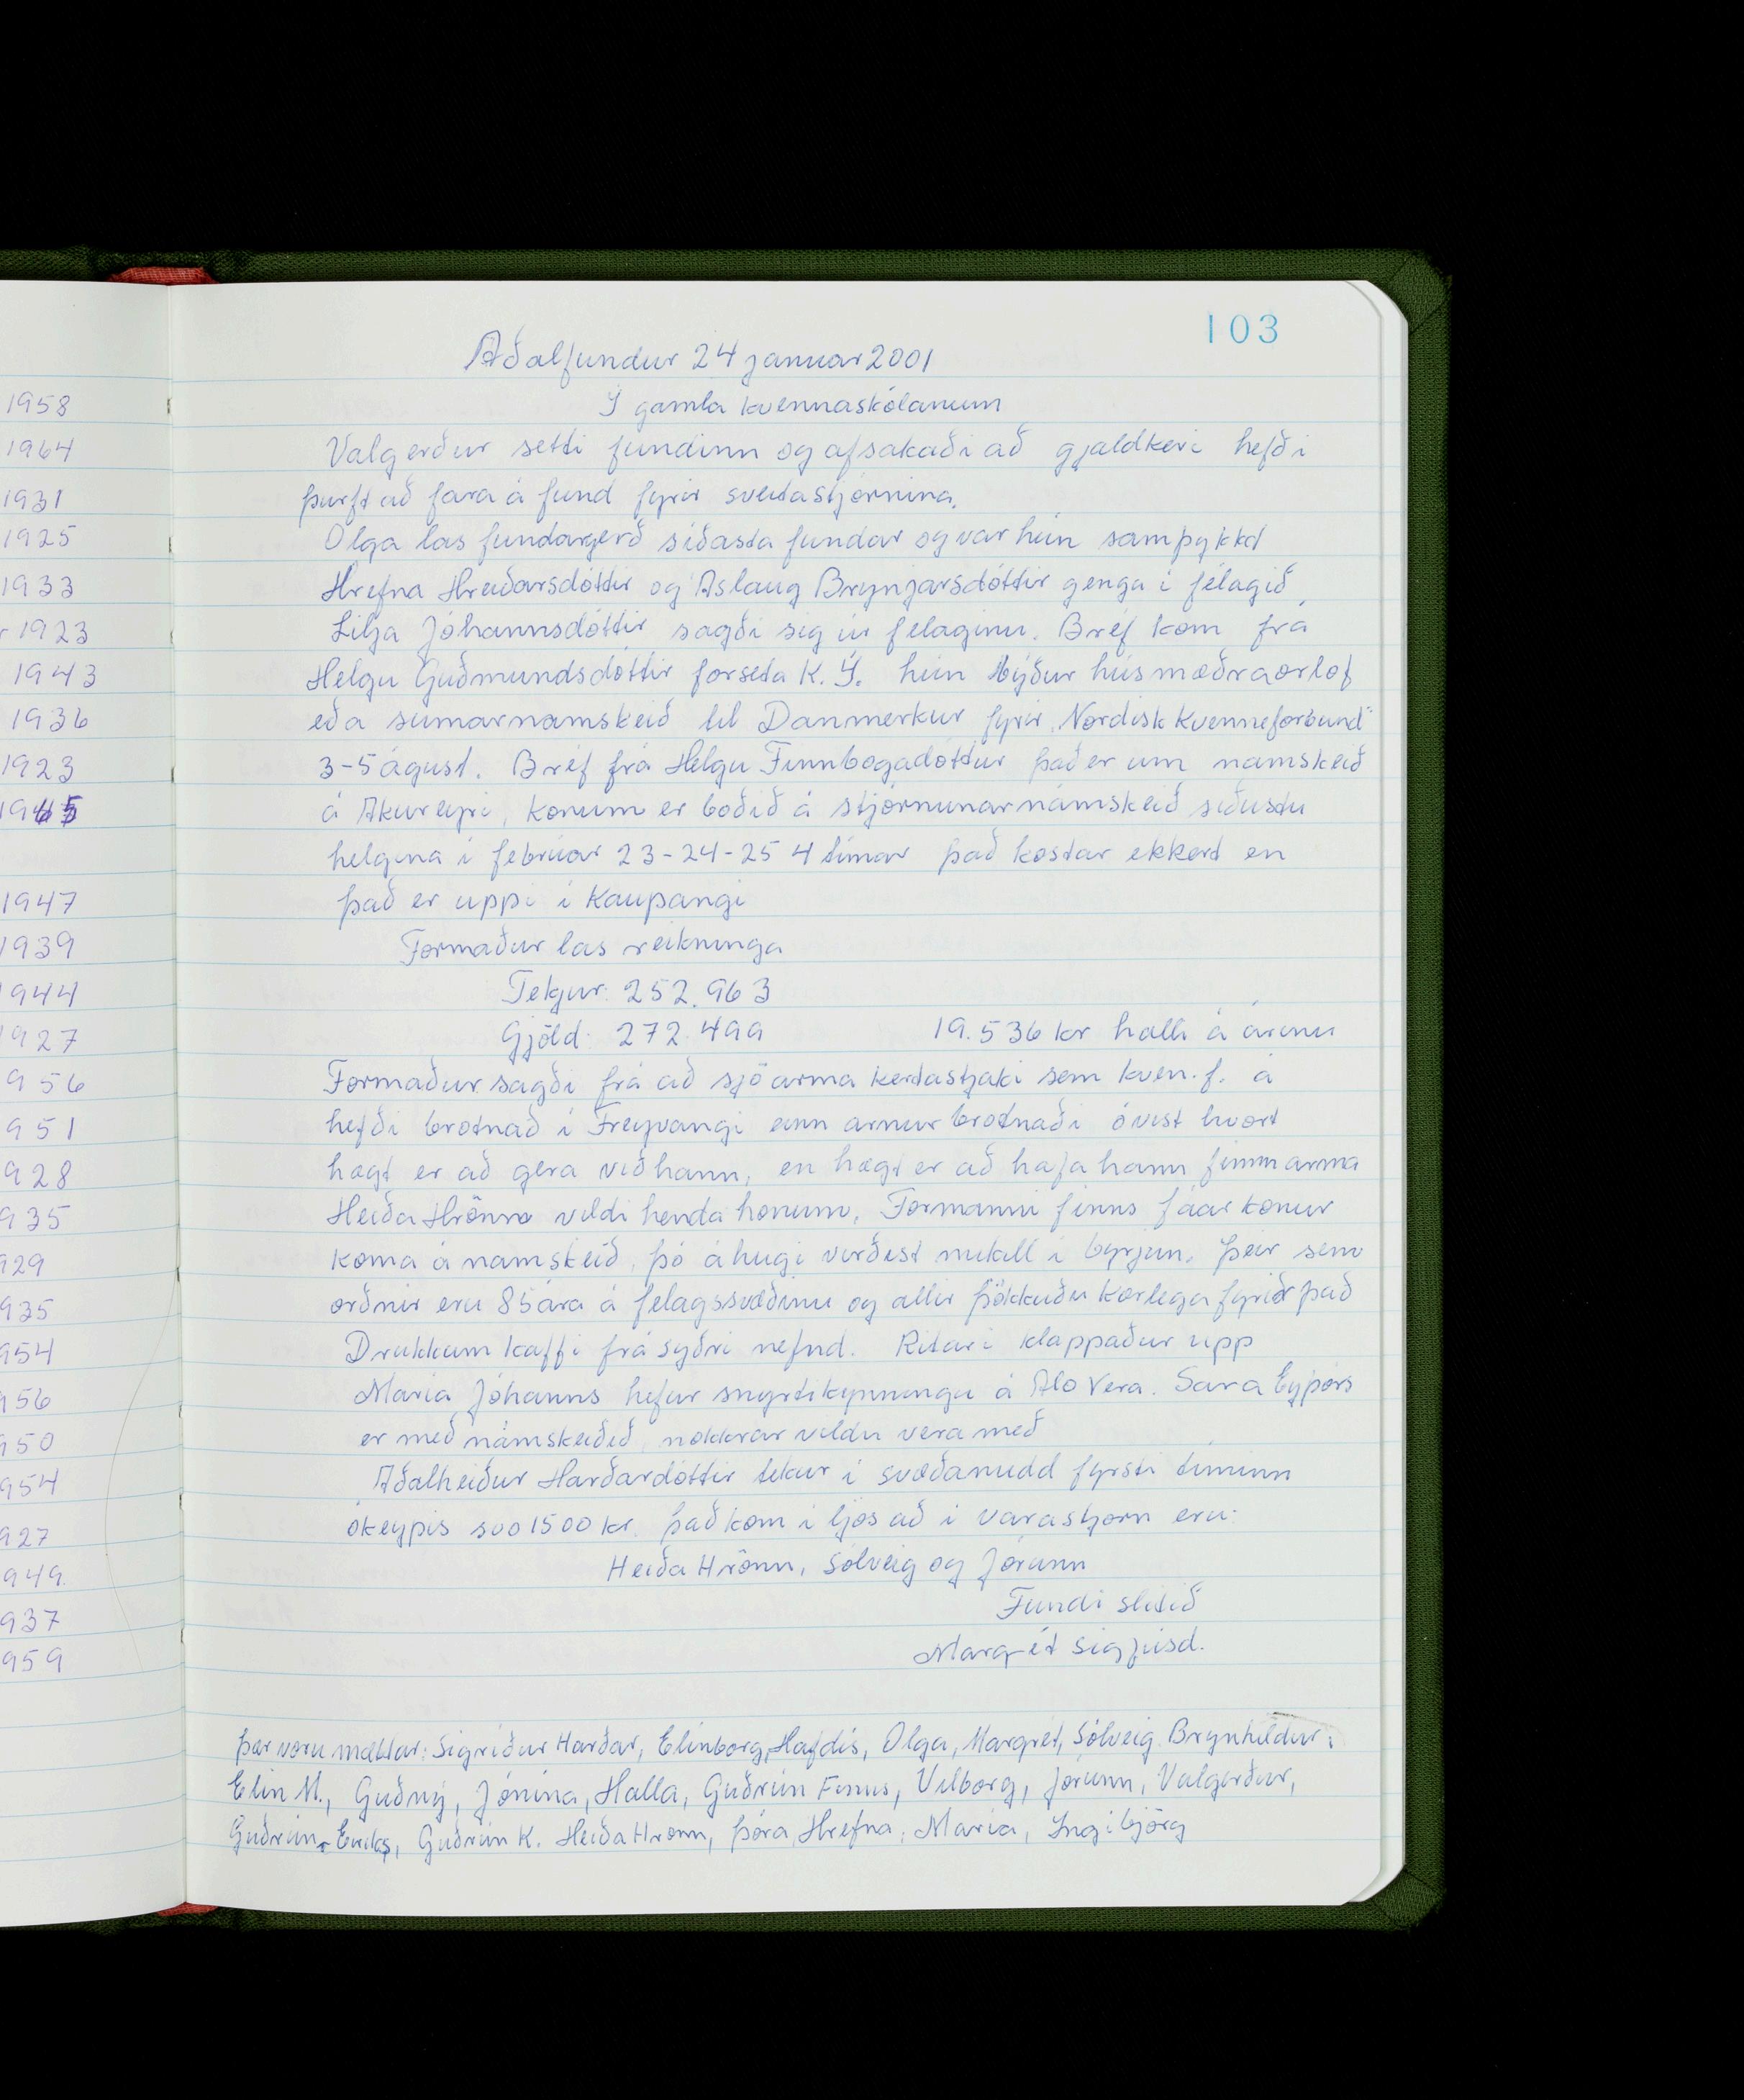 103
Aðalfundur 24 januar 2001
Í gamla kvennaskólanum
Valgerður setti fundinn og afsakaði að gjaldkeri hefði
þurft að fara á fund fyrir sveitastjórnina.
Olga las fundargerð síðasta fundar og var hún samþykkt
Hrefna Hreiðarsdóttir og Aslaug Brynjarsdóttir genga í félagið,
Lilja Jóhannsdóttir sagði sig úr felaginu. Bréf kom frá
Helgu Guðmundsdóttir forseta K.Í. hún býður húsmæðraorlof
eða sumarnamskeið til Danmerkur fyrir "Nordisk Kvenneforbund"
3-5 águst. Bréf frá Helgu Finnbogadóttur það er um namskeið
á Akureyri, Konum er boðið á stjórnunarnámskeið síðustu
helgina í febrúar 23-24-25 4 tímar það kostar ekkert en
það er uppi í Kaupangi
Formaður las reikninga
Tekjur: 252.963
Gjöld: 272.499 19.536 kr halli á árinu
Formaður sagði frá að sjöarma kertastjaki sem kven.f. á
hefði brotnað í Freyvangi einn armur brotnaði óvist hvort
hægt er að gera við hann, en hægt er að hafa hann fimm arma
Heiða Hrönn vildi henda honum. Formanni finns fáar konur
koma á namskeið, þó áhugi virðist mikill í byrjun. Þeir sem
orðnir eru 85 ára á felagssvæðinu og allir þökkuðu kærlega fyrir það
Drukkum kaffi frá syðri nefnd. Ritari klappaður upp
Maria Jóhanns hefur snyrtikynningu á Alo Vera. Sara Eyþórs
er með námskeiðið, nokkrar vildu vera með
Aðalheiður Harðardóttir tekur í svæðanudd fyrsti timinn
ókeypis svo 1500 kr. það kom í ljós að í varastjorn eru:
Heiða Hrönn, Sólveig og Jórunn
Fundi slitið
Margrét Sigfúsd.
Þar voru mættar: Sigríður Harðar, Elinborg, Hafdís, Olga, Margrét, Sólveig, Brynhildur,
Elín M., Guðný, Jónína, Halla, Guðrún Finns, Vilborg, Jórunn, Valgerður,
Guðrún Eiríks, Guðrún K. Heiða Hronn, Þóra, Hrefna, Maria, Ingibjörg
1958
1964
1931
1925
1933
1923
1943
1936
1923
1947
1939
1944
1927
956
951
928
935
929
935
954
956
950
954
927
949.
937
959